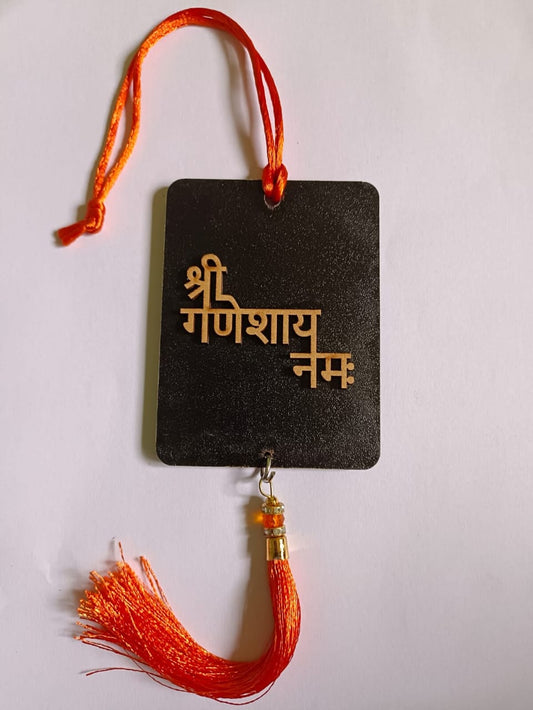 श्री
गणेशाय
नमः